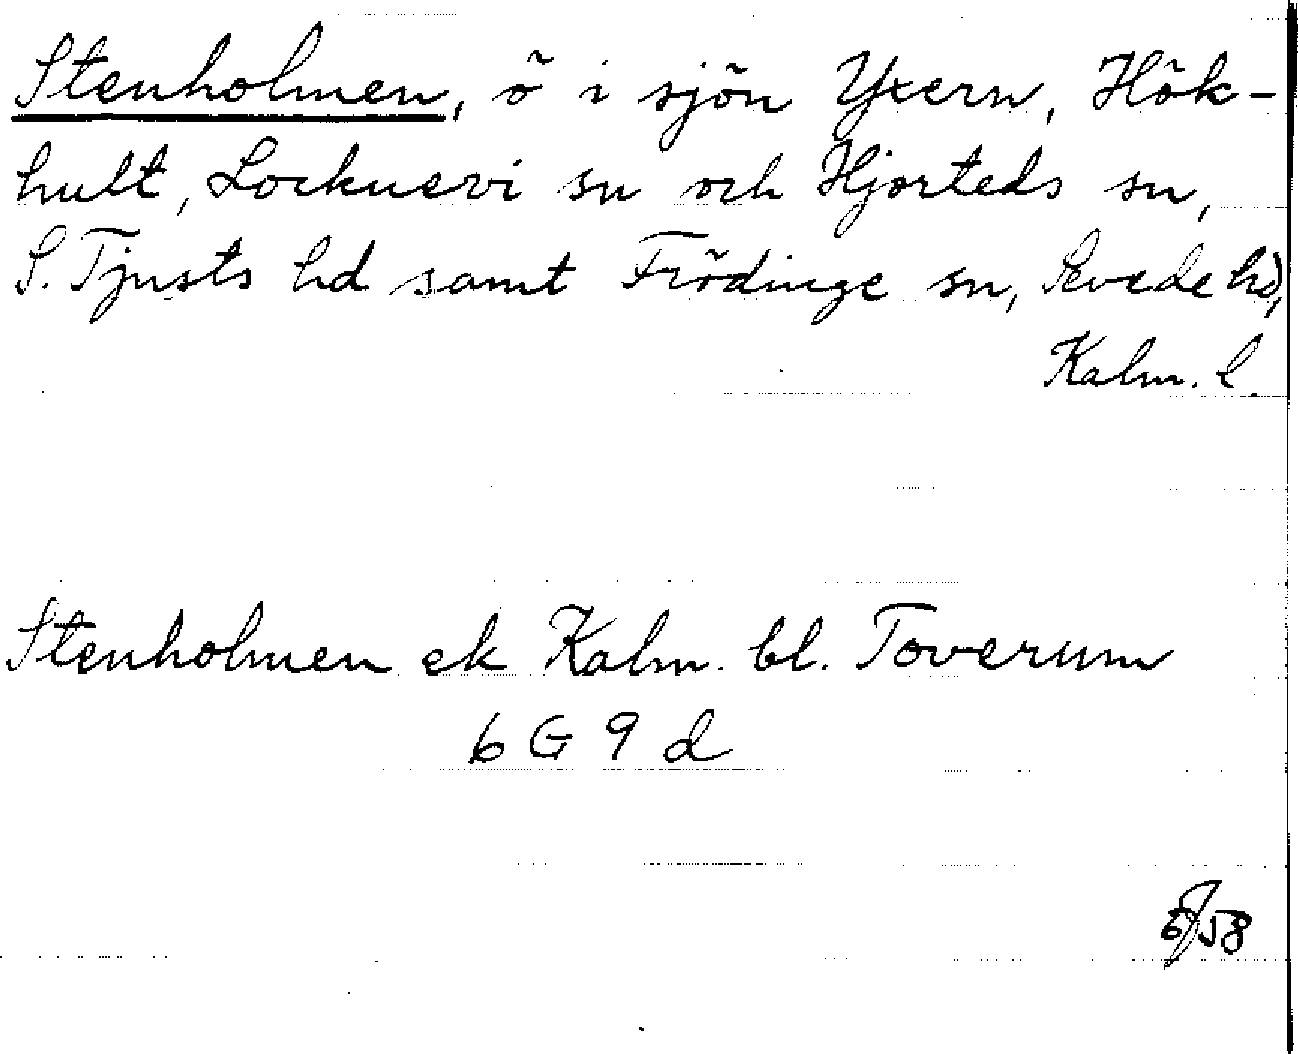 Stenholmen, ö i sjön Yxern, Hök-
hult, Locknevi sn och Hjorteds sn,
S. Tjusts hd samt Frödinge sn, Sevede hd,
Kalm. l.
Stenholmen ek Kalm. bl. Toverum
6 G 9 d